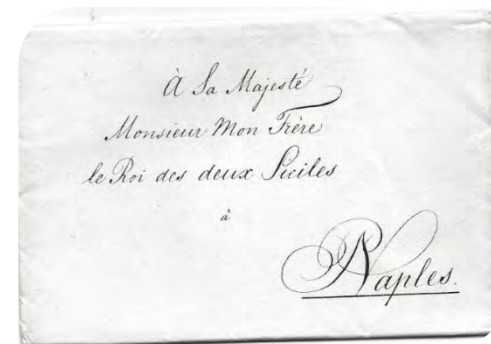 À Sa Majesté
Monsieur Mon Frère
le Roi des deux Siciles
à
Naples.